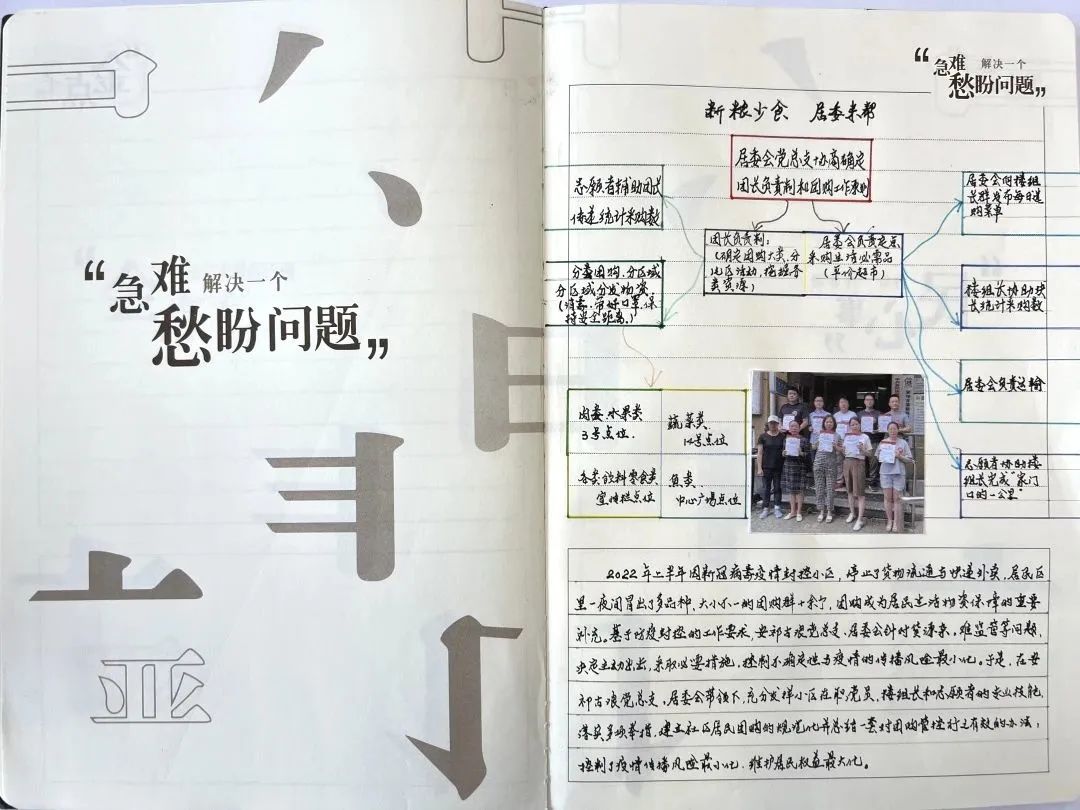 “急难
解决一个
愁盼问题”
“急难
解决一个
愁盼问题”
断粮少食 居委来帮
居委会党总支协商确定
团长负责制和团购工作原则
志愿者辅助团长
传递统计采购数
团长负责制:
(确定团购大类,分
化区活动,
类资源)
居委会负责定点
采购生活必需品
(平价超市)
居委会向楼组
长群发布每日选
购菜单
分类团购、分区域
分区域分发物资。
(消毒、带好口罩、保
持安全距离。)
楼组长协助块
长统计采购数
居委会负责运输
肉蛋水果类
3号点位
蔬菜类
14号点位
各类饮料零食类
宣传栏点位
鱼类
中心广场点位
志愿者协助楼
组长完成“家门
口的一公里”
2022年上半年因新冠病毒疫情封控小区,停止了货物流通与快递外卖,居民区
里一夜间冒出了多品种、大小不一的团购群十余个,团购成为居民生活物资保障的重要
补充。基于防疫封控的工作要求,安祁古浪党总支、居委会针对货源杂、难监管等问题,
决定主动出击,采取必要措施,控制不确定性与疫情的传播风险最小化。于是,在安
祁古浪党总支、居委会带领下,充分发挥小区在职党员、楼组长和志愿者的专业技能,
落实多项举措,建立社区居民团购的规范化并总结一套对团购管控行之有效的办法;
控制了疫情传播风险最小化,维护居民权益最大化。